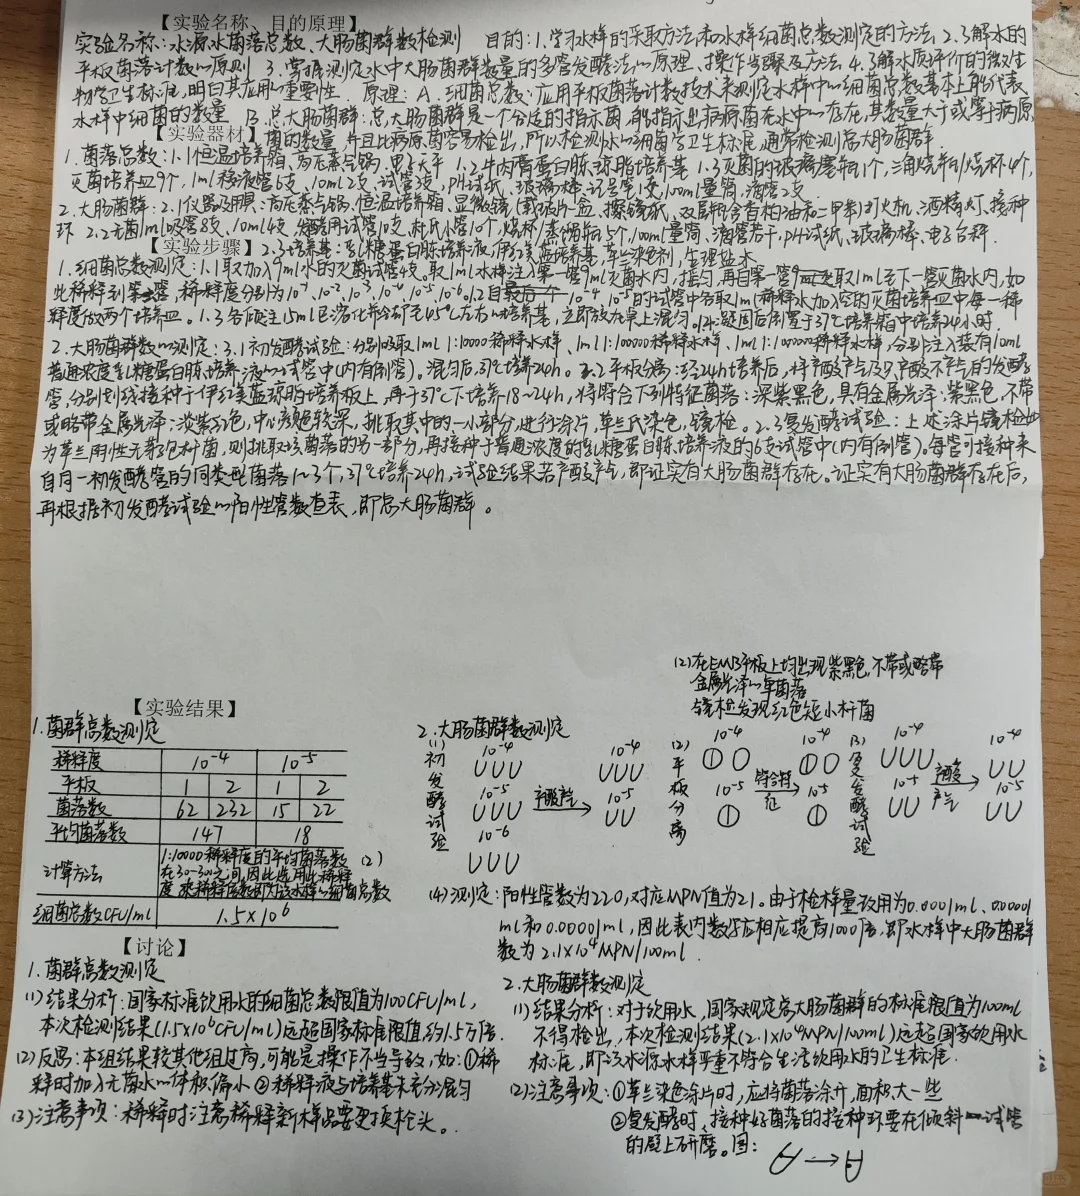 【实验名称、目的原理】
实验名称:水源水菌落总数、大肠菌群数检测 目的:1.学习水样的采取方法和水样细菌总数测定的方法 2.了解水的
平板菌落计数的原则 3.掌握测定水中大肠菌群数量的多管发酵法的原理、操作步骤及方法 4.了解水质评价的微生
物学卫生标准,明白其应用的重要性. 原理:A.细菌总数:应用平板菌落计数技术来测定水样中的细菌总数基本上能代表
水样中细菌的数量 B.总大肠菌群:总大肠菌群是一个公定的指示菌,能指示出病原菌在水中的存在,其数量大于或等于病原
【实验器材】菌的数量,并且比病原菌容易检出,所以检测水的细菌学卫生标准,通常检测总大肠菌群.
1.菌落总数:1.1恒温培养箱、高压蒸气锅、电子天平 1.2牛肉膏蛋白胨琼脂培养基 1.3灭菌的玻璃塞瓶1个,三角烧瓶/烧杯4个,
灭菌培养皿9个,1ml移液管6支,10ml2支、试管3支,pH试纸、玻璃棒、记号笔1支,100ml量筒,滴管2支.
2.大肠菌群:2.1仪器及用具:高压蒸气锅、恒温培养箱、显微镜(载玻片一盒、擦镜纸、双层瓶含香柏油和二甲苯)打火机、酒精灯、接种
环 2.2无菌1ml吸管8支、10ml4支、发酵用试管10支、杜氏小管10个,烧杯/蒸馏瓶5个,100ml量筒、滴管若干,pH试纸、玻璃棒、电子台秤.
【实验步骤】2.3培养基:乳糖蛋白胨培养液,伊红美蓝培养基,革兰染色剂,生理盐水
1.细菌总数测定:1.1取加入9ml水的灭菌试管4支,取1ml水样注入第一管9ml灭菌水内,摇匀,再自第一管取1ml至下一管灭菌水内,如
此稀释到第六管,稀释度分别为10⁻¹、10⁻²、10⁻³、10⁻⁴、10⁻⁵、10⁻⁶.1.2自10⁻⁴、10⁻⁵的试管中各取1ml稀释水加入空的灭菌培养皿中每一稀
释度做两个培养皿。1.3各倾注15ml已溶化并冷却至45℃左右的培养基,立即放在桌上混匀。1.4凝固后倒置于37℃培养箱中培养24小时.
2.大肠菌群数的测定:3.1初发酵试验:分别吸取1ml 1:10000稀释水样、1ml 1:100000稀释水样、1ml 1:1000000稀释水样,分别注入装有10ml
普通浓度乳糖蛋白胨培养液的试管中(内有倒管)。混匀后,37℃培养24h。2.2平板分离:经24h培养后,将产酸产气及只产酸不产气的发酵
管,分别划线接种于伊红美蓝琼脂培养板上,再于37℃下培养18~24h,将符合下列特征菌落:深紫黑色,具有金属光泽;紫黑色,不带
或略带金属光泽;淡紫红色,中心颜色较深,挑取其中的一小部分,进行涂片,革兰氏染色,镜检。2.3复发酵试验:上述涂片镜检如
为革兰阴性无芽孢杆菌,则挑取该菌落的另一部分,再接种于普通浓度的乳糖蛋白胨培养液的6支试管中(内有倒管)。每管可接种来
自同一初发酵管的同类型菌落1~3个,37℃培养24h,试验结果若产酸产气,即证实有大肠菌群存在。证实有大肠菌群存在后,
再根据初发酵试验的阳性管数查表,即总大肠菌群。
【实验结果】
1.菌群总数测定
稀释度 10⁻⁴ 10⁻⁵
平板 1 2 1 2
菌落数 62 232 15 22
平均菌落数 147 18
计算方法 1:10000稀释度的平均菌落数 (2)
在30-300之间,因此选用此稀释
度来稀释倍数即为该水样的细菌总数
细菌总数CFU/ml 1.5×10⁶
2.大肠菌群数测定
(1)初发酵试验
10⁻⁴
10⁻⁵
10⁻⁶
产酸产气
10⁻⁴
10⁻⁵
(2)平板分离
10⁻⁴
10⁻⁵
符合特征
10⁻⁴
10⁻⁵
(2)在EMB平板上均出现紫黑色,不带或略带
金属光泽的单菌落
镜检发现红色短小杆菌
(3)复发酵试验
10⁻⁴
10⁻⁵
产酸产气
10⁻⁴
10⁻⁵
(4)测定:阳性管数为220,对应MPN值为21.由于检样量改用为0.0001ml、0.00001
ml和0.000001ml,因此表内数字应相应提高1000倍,即水样中大肠菌群
数为2.1×10⁴MPN/100ml.
【讨论】
1.菌群总数测定
(1)结果分析:国家标准饮用水的细菌总数限值为100CFU/ml,
本次检测结果(1.5×10⁶CFU/ml)远超国家标准限值约1.5万倍.
(2)反思:本组结果较其他组过高,可能是操作不当导致,如:①稀
释时加入无菌水的体积偏小 ②稀释液与培养基未充分混匀
(3)注意事项:稀释时注意稀释新样品要更换枪头。
2.大肠菌群数测定
(1)结果分析:对于饮用水,国家规定总大肠菌群的标准限值为100ml
不得检出,本次检测结果(2.1×10⁴MPN/100ml)远超国家饮用水
标准,即该水源水样严重不符合生活饮用水的卫生标准.
(2)注意事项:①革兰染色涂片时,应将菌落涂开,面积大一些
②复发酵时,接种好菌落的接种环要在倾斜试管
的壁上研磨。图: